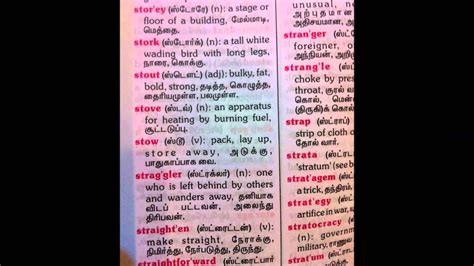 stor'ey (ஸ்டோரே) (n): a stage or
floor of a building, மேல்மாடி,
மெத்தை.
stork (ஸ்டோர்க்) (n): a tall white
wading bird with long legs,
நாரை, கொக்கு.
stout (ஸ்டௌட்) (adj): bulky, fat,
bold, strong, தடித்த, கொழுத்த,
தைரியமுள்ள, பலமுள்ள.
stove (ஸ்டவ்) (n): an apparatus
for heating by burning fuel,
சூட்டடுப்பு.
stow (ஸ்டூ) (v): pack, lay up,
store away, அடுக்கு,
பாதுகாப்பாக வை.
strag'gler (ஸ்ட்ரக்லர்) (n): one
who is left behind by others
and wanders away, தனியாக
விடப் பட்டவன், அலைந்து
திரிபவன்.
straight'en (ஸ்ட்ரைட்டன்) (v):
make straight, நேராக்கு,
நிமிர்த்து, நேர்படுத்து, திருந்து.
straightfor'ward (ஸ்ட்ரைட்பார்
unusual, n
அற்புதமான
அதிசயமான,
stran'ger (
foreigner, o
அந்நியன், அறிமு
stran'gle (
choke by pres
throat, குரல்
கொல், மென்னி
(திருகி) கொல்
strap (ஸ்ட்ராப்)
strip of cloth o
தோல் வார்.
strata (ஸ்ட்ரா
'stratum' (see b
strat'agem (ஸ்
a trick, தந்திரம்,
strat'egy (ஸ்ட்
artifice in war,
stratocracy (
(n): governm
military, ராணுவ
strat'um (ஸ்ட்